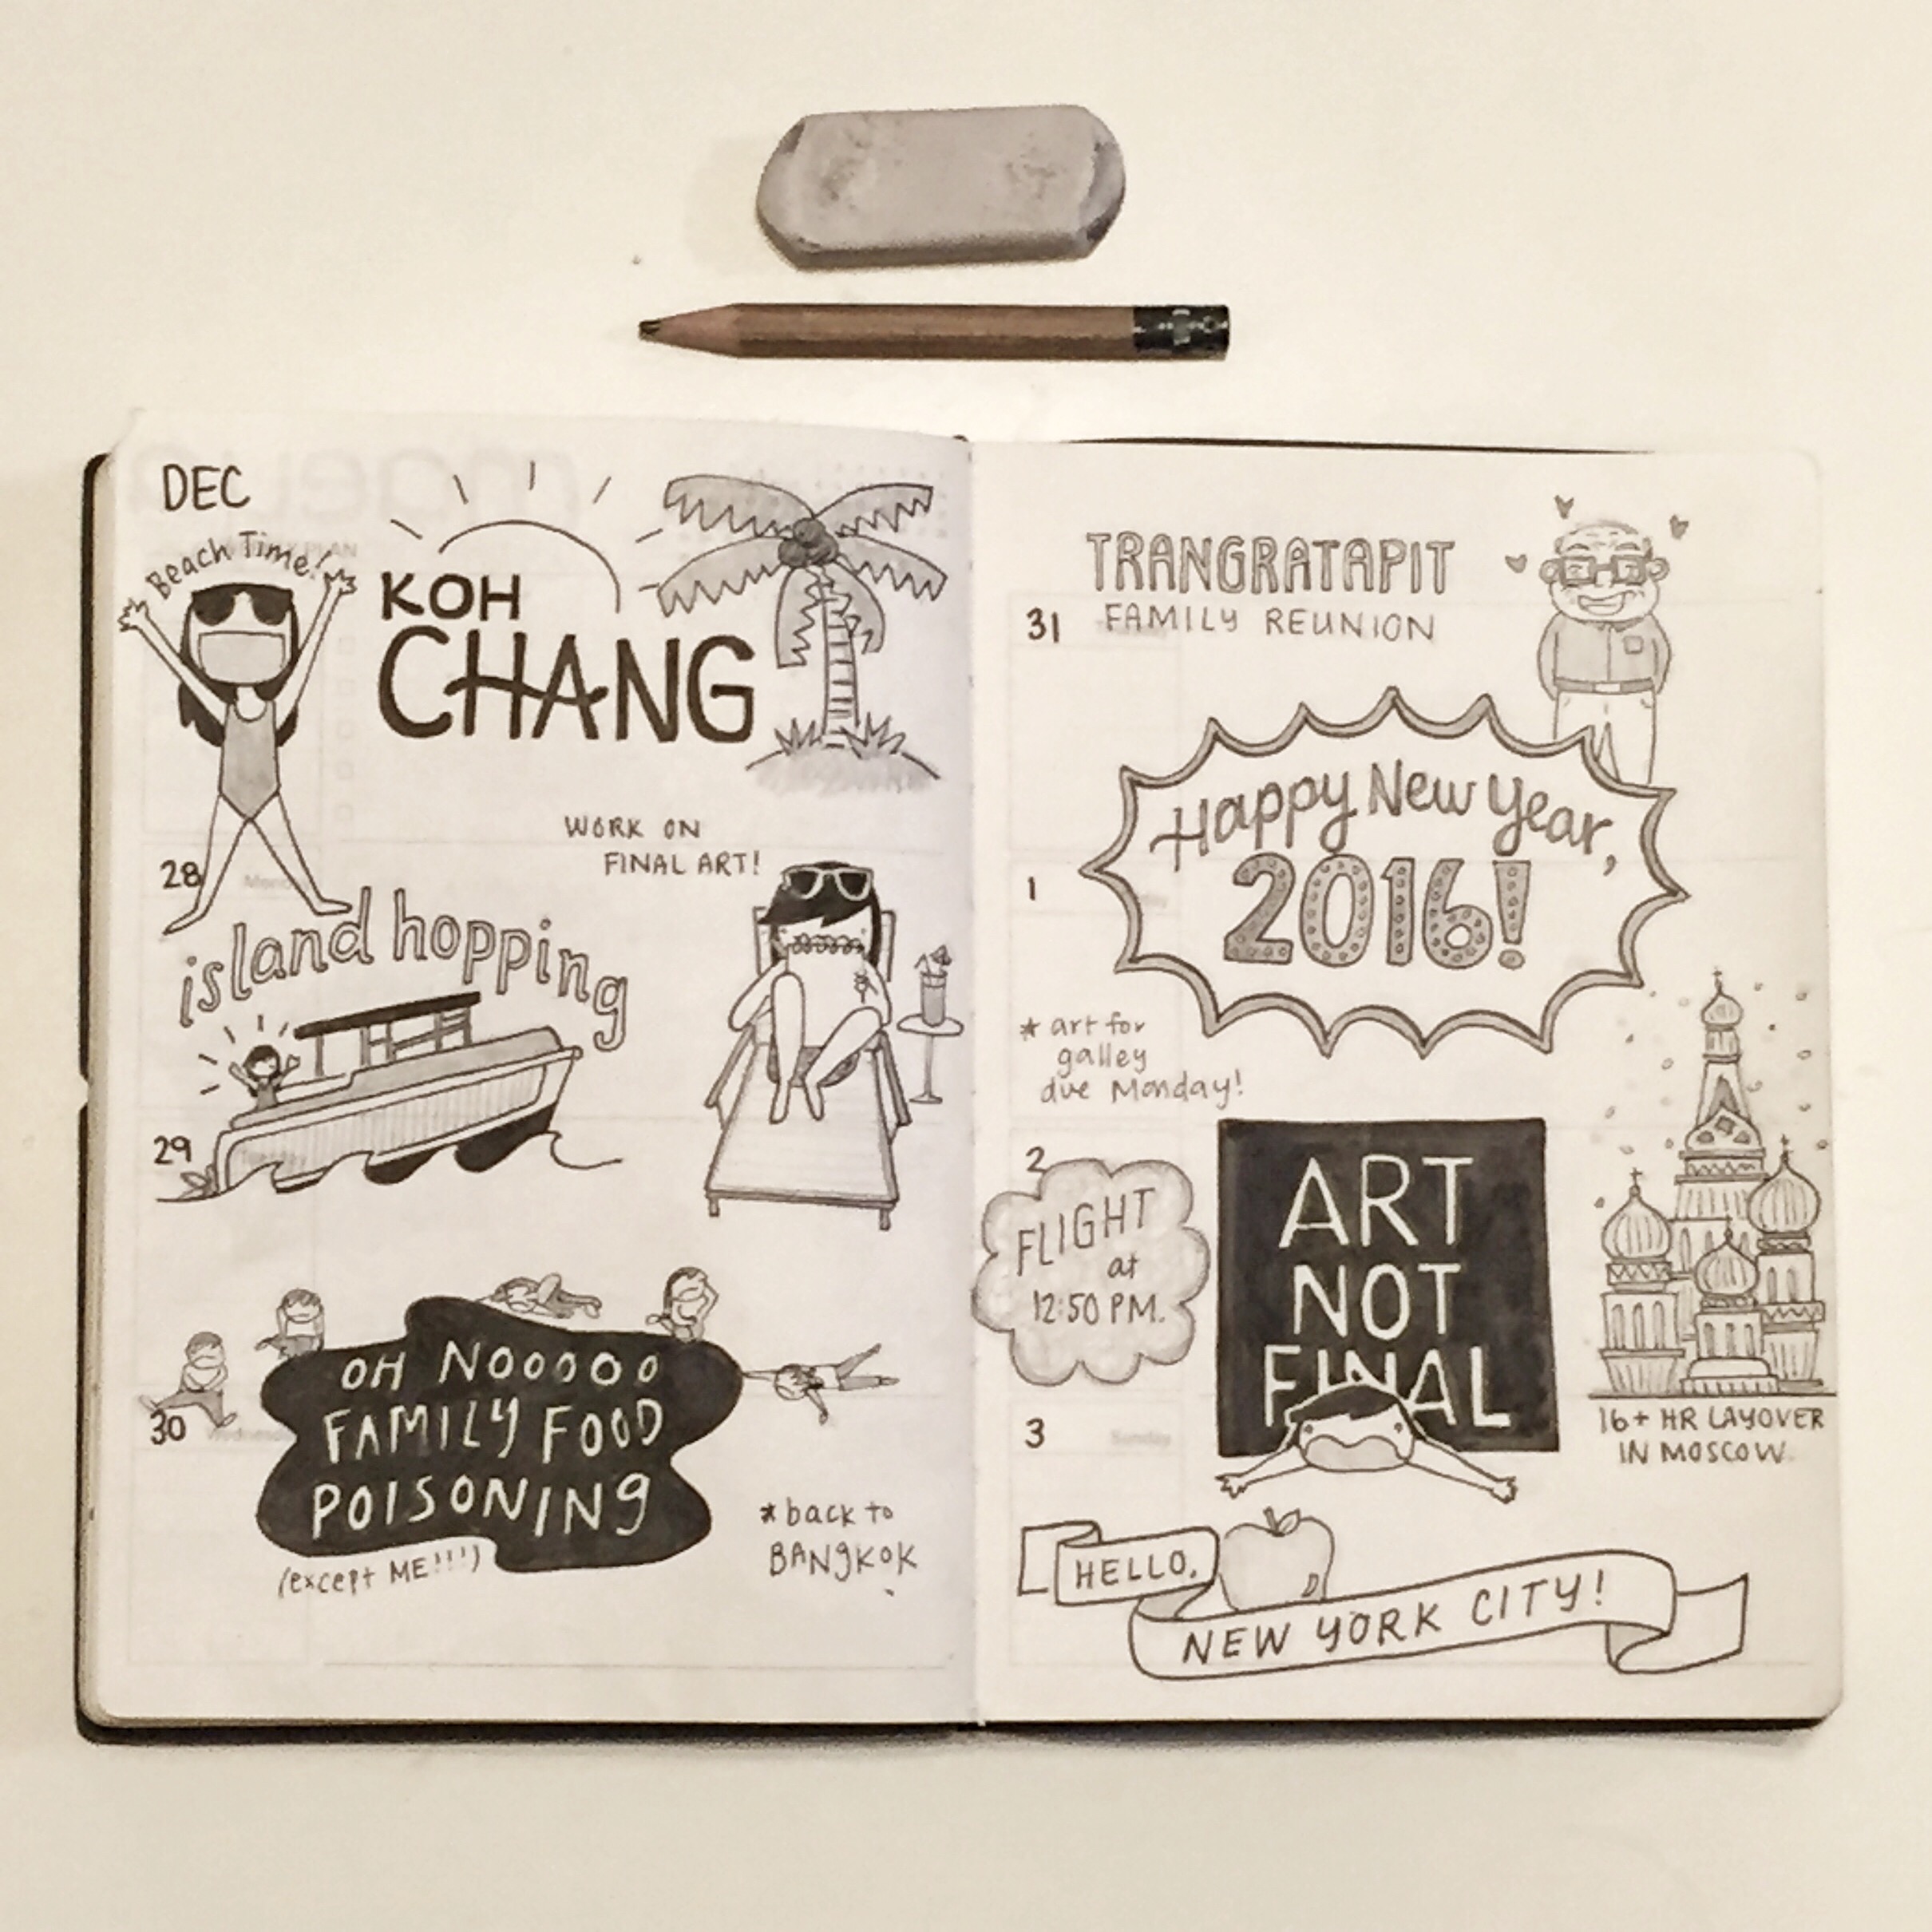 DEC
Beach Time!
KOH
CHANG
WORK ON
FINAL ART!
28
island hopping
29
OH NOOOOO
FAMILY FOOD
POISONING
30
(except ME!!!!)
*back to
BANGKOK
TRANGRATAPIT
31 FAMILY REUNION
Happy New Year,
2016!
1
* art for
galley
due Monday!
2
FLIGHT
at
12:50 PM.
ART
NOT
FINAL
3 Sunday
16+ HR LAYOVER
IN MOSCOW
HELLO,
NEW YORK CITY!